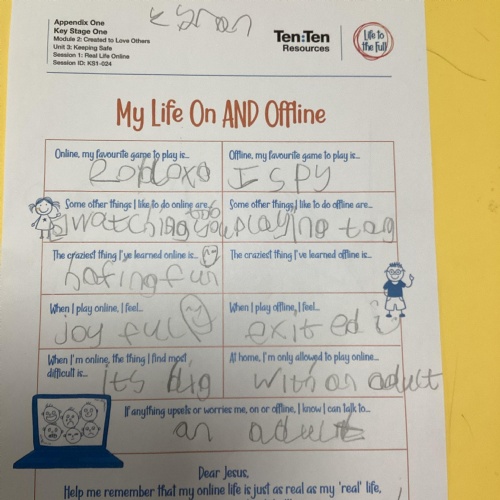 Appendix One
Key Stage One
Module 2: Created to Love Others
Unit 3: Keeping Safe
Session 1: Real Life Online
Session ID: KS1-024
Ten:Ten
Resources
Life to
the Full
My Life On AND Offline
Online, my favourite game to play is...
Offline, my favourite game to play is...
I spy
Some other things I like to do online are...
Some other things I like to do offline are...
watching
playing tag
The craziest thing I've learned online is...
The craziest thing I've learned offline is...
hafing fun
When I play online, I feel...
When I play offline, I feel...
joy full
exited
When I'm online, the thing I find most
difficult is...
At home, I'm only allowed to play online...
its big
with an adult
If anything upsets or worries me, on or offline, I know I can talk to...
an adult
Dear Jesus,
Help me remember that my online life is just as real as my 'real' life,